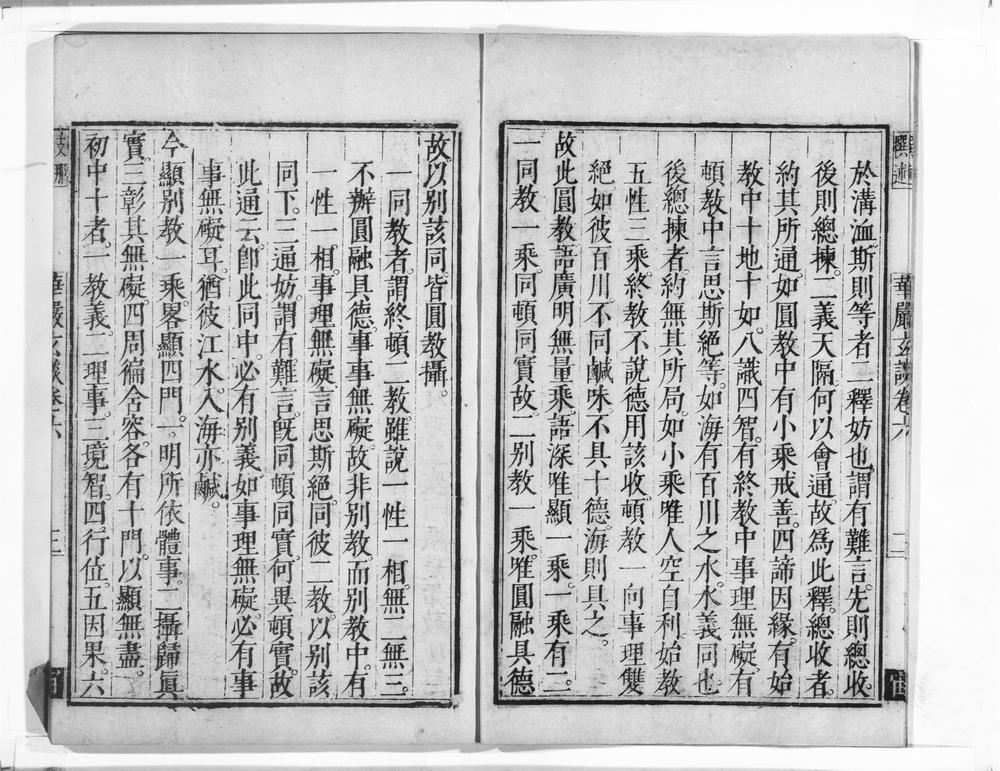 於溝洫斯則等者二釋妨也謂有難言先則總收
後則總揀二義天隔何以會通故為此釋總收者
約其所通如圓教中有小乘戒善四諦因緣有始
教中十地十如八識四智有終教中事理無礙有
頓教中言思斯絕等如海有百川之水水義同也
後總揀者約無其所局如小乘唯人空自利始教
五性三乘終教不說德用該收頓教一向事理雙
絕如彼百川不同鹹味不具十德海則具之
故此圓教語廣明無量乘語深唯顯一乘一乘有二
一同教一乘同頓同實故二別教一乘唯圓融具德
故以別該同皆圓教攝
一同教者謂終頓二教雖說一性一相無二無三
不辦圓融具德事事無礙故非別教而別教中有
一性一相事理無礙言思斯絕同彼二教以別該
同下三通妨謂有難言既同頓同實何異頓實故
此通云即此同中必有別義如事理無礙必有事
事無礙耳猶彼江水入海亦鹹
今顯別教一乘畧顯四門一明所依體事二攝歸眞
實三彰其無礙四周徧含容各有十門以顯無盡
初中十者一教義二理事三境智四行位五因果六
華嚴玄談卷六
二
華嚴玄談卷六
三